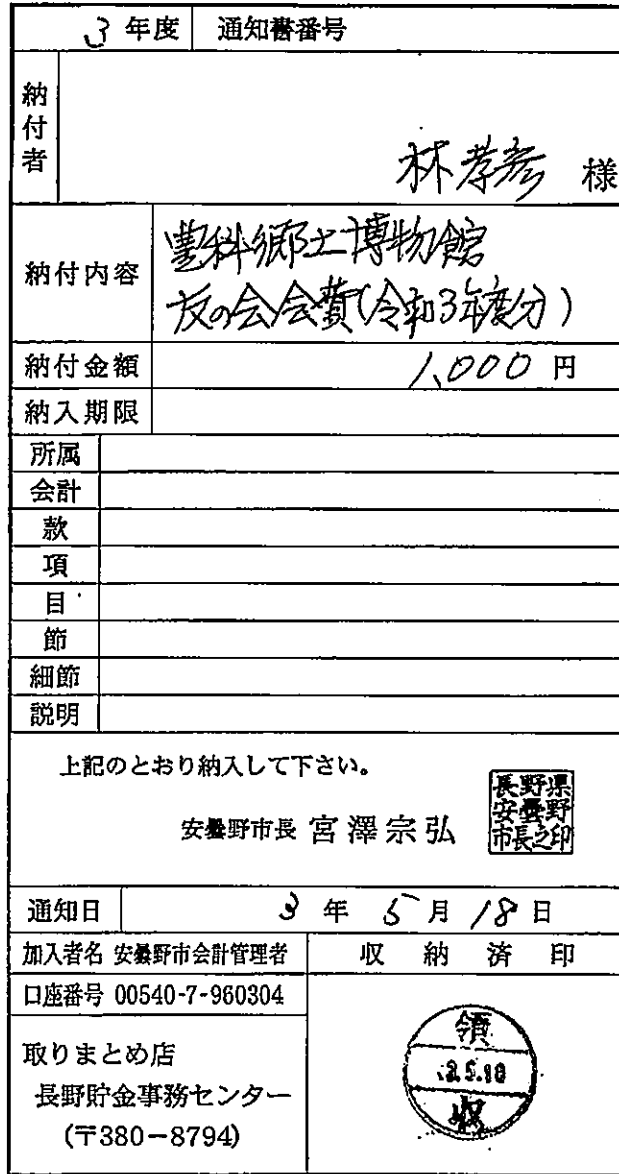 3 年度 通知書番号
納付者
林孝彦 様
納付内容
豊科郷土博物館
友の会会費(令和3年度分)
納付金額 1,000 円
納入期限
所属
会計
款
項
目
節
細節
説明
上記のとおり納入して下さい。
安曇野市長 宮澤宗弘
長野県
安曇野
市長之印
通知日 3 年 5 月 18 日
加入者名 安曇野市会計管理者
収納済印
口座番号 00540-7-960304
取りまとめ店
長野貯金事務センター
(〒380-8794)
領
収